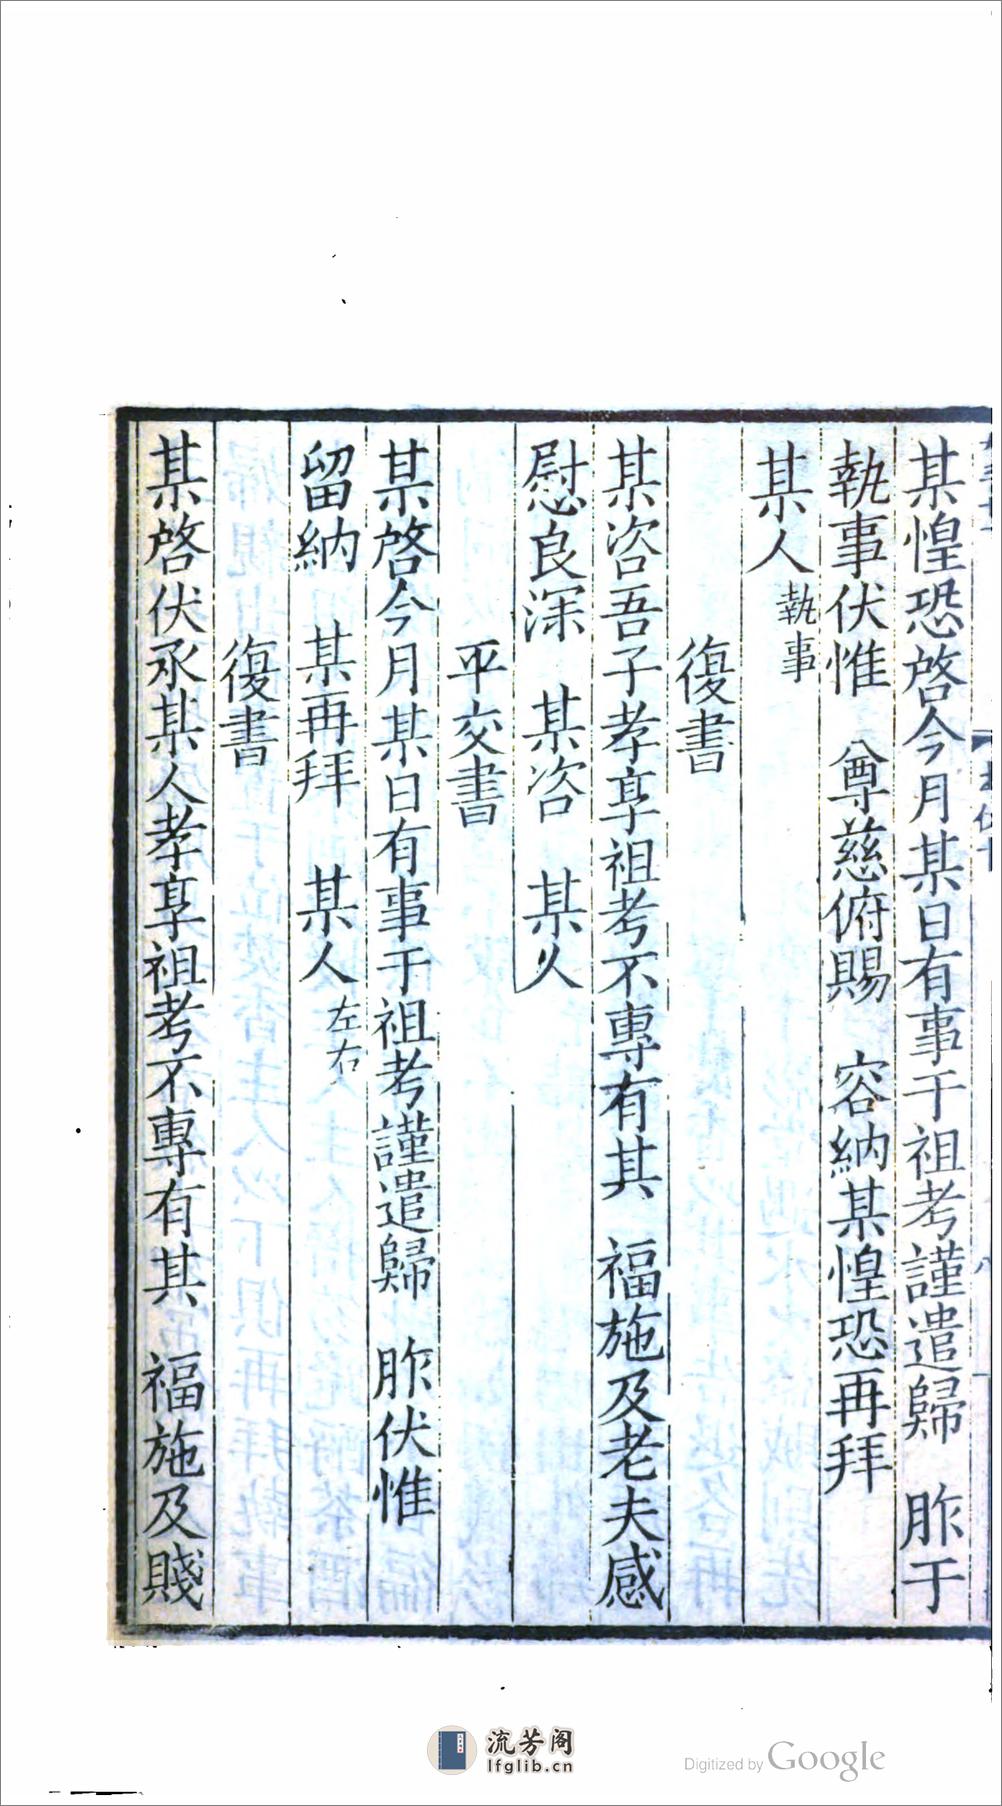 某惶恐啓今月某日有事于祖考謹遣歸　胙于
執事伏惟　尊慈俯賜　容納某惶恐再拜
某人執事
復書
某咨吾子孝享祖考不專有其　福施及老夫感
慰良深　某咨　某人
平交書
某啓今月某日有事于祖考謹遣歸　胙伏惟
留納　某再拜　某人左右
復書
某啓伏承某人孝享祖考不專有其　福施及賤
流芳阁
lfglib.cn
Digitized by Google